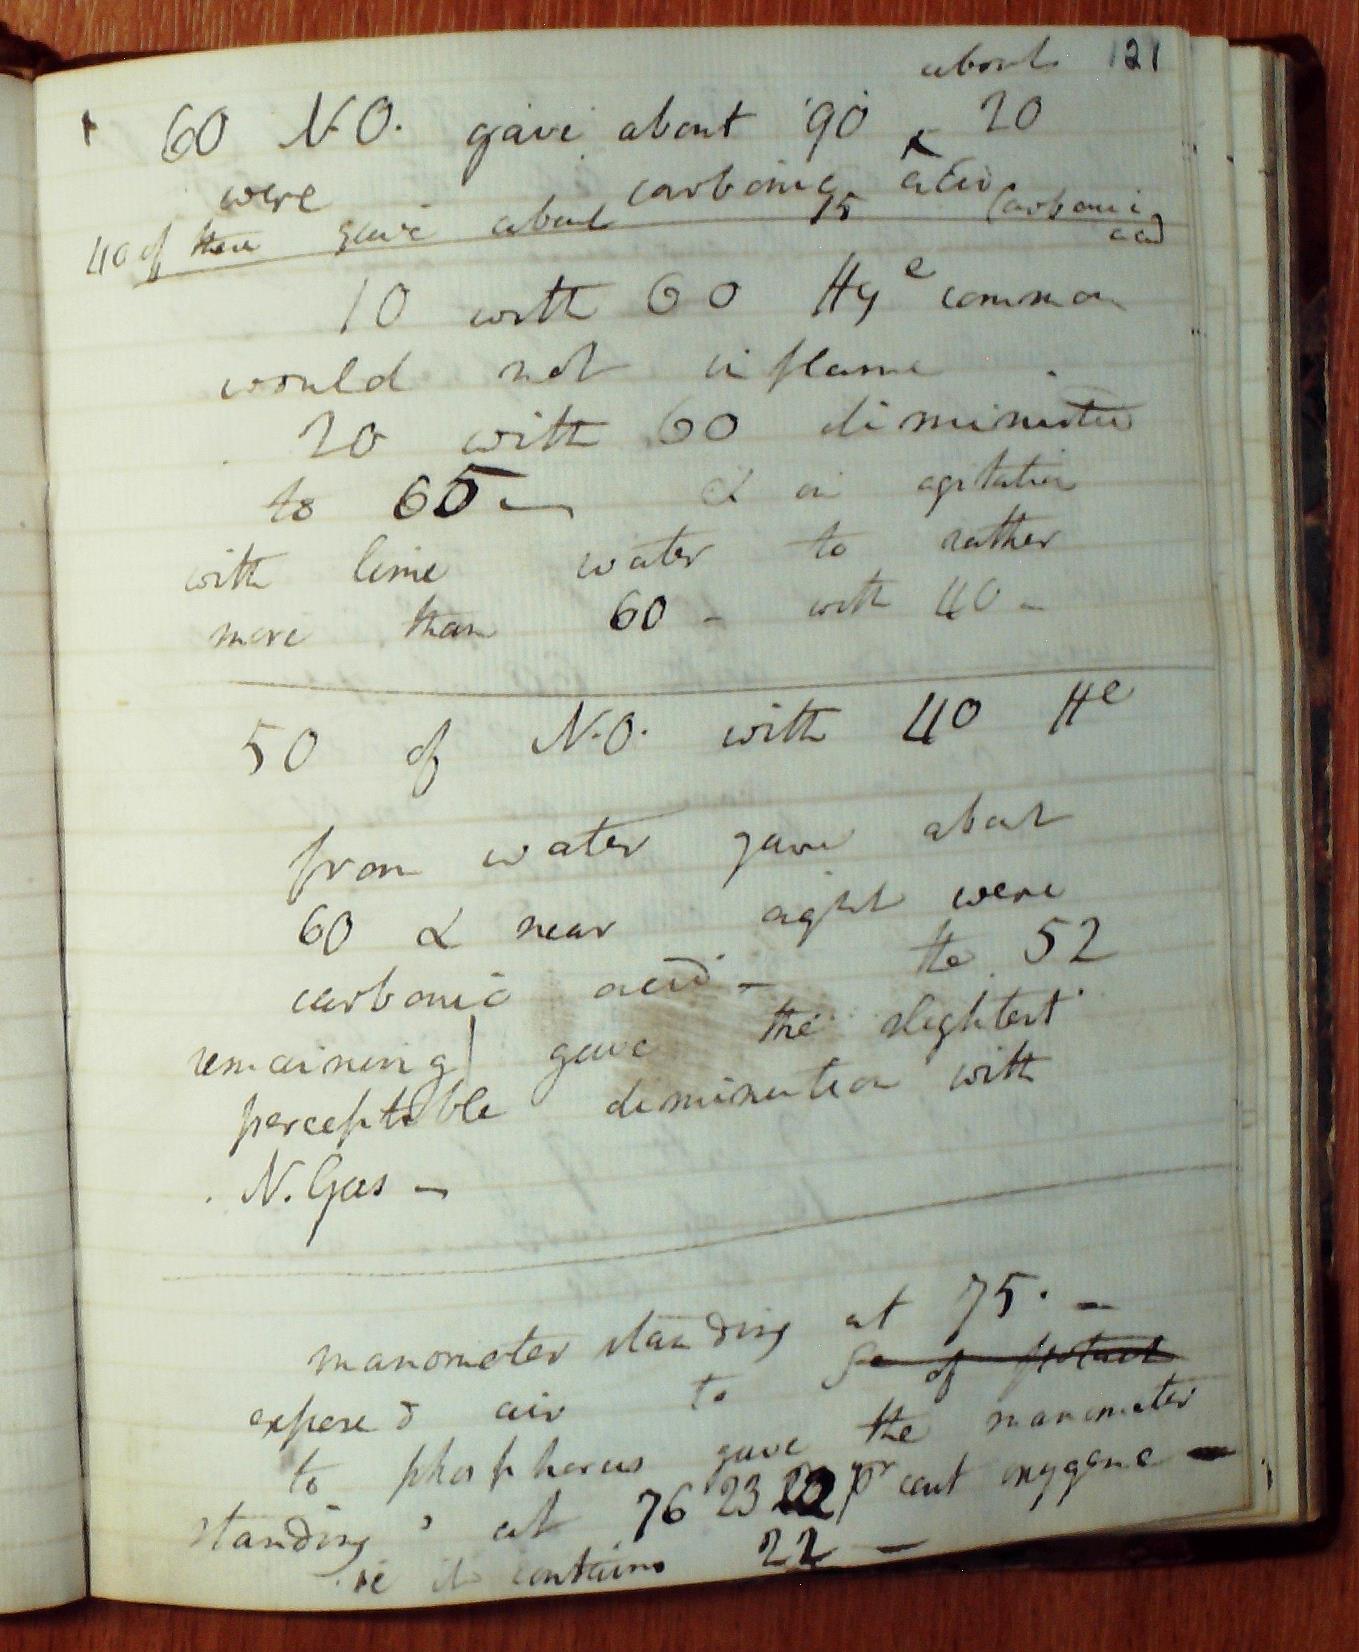 121
60 N.O. gave about 90 about 20
were carbonic acid
40 of these gave about 15 Carbonic acid
10 with 60 Hy^e common
would not inflame
20 with 60 diminished
to 65 — & on agitation
with lime water to rather
more than 60 - with 40 -
50 of N.O. with 40 H^e
from water gave about
60 & near eight were
carbonic acid - the 52
remaining gave the slightest
perceptible diminution with
N. Gas -
manometer standing at 75. -
exposed air to of
to phosphorus gave the manometer
standing at 76 23 22 pr cent oxygene -
ie it contains 22 -